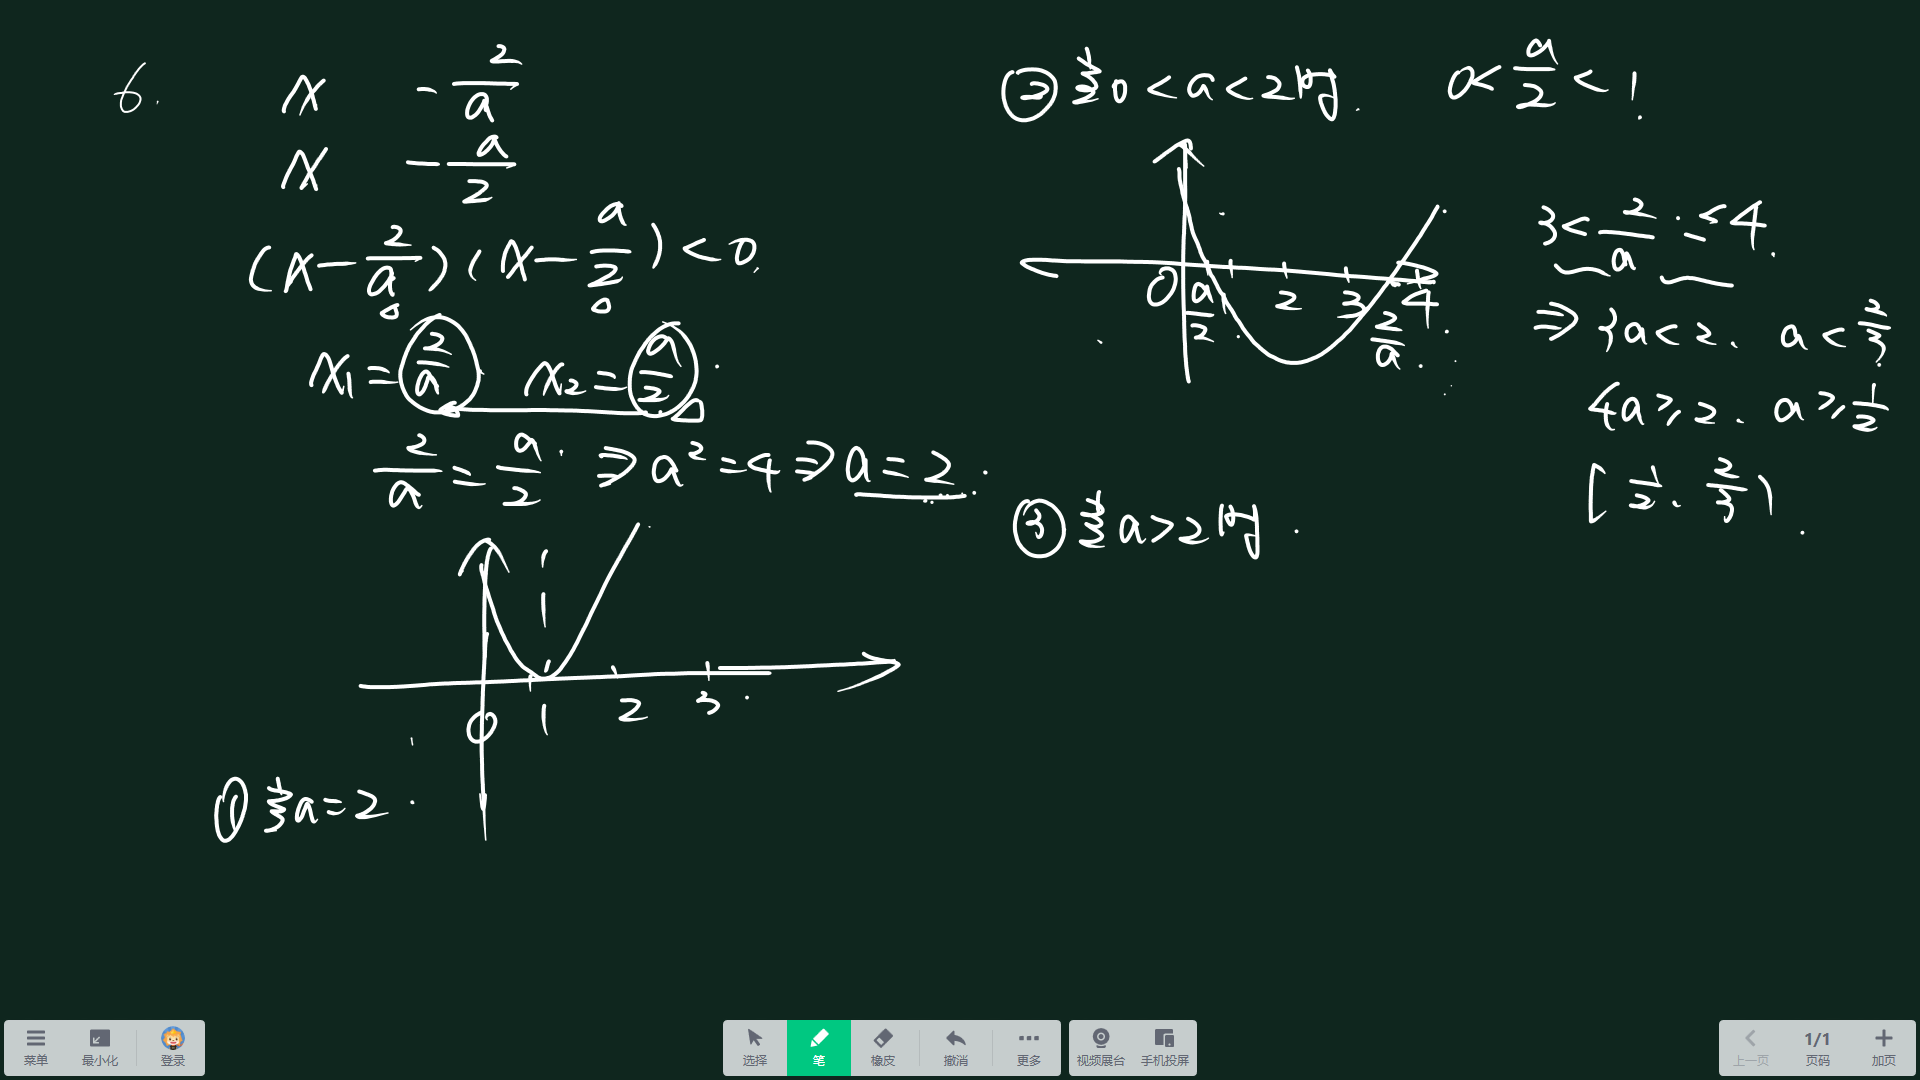 6.
x -2/a
x -a/2
(x-2/a)(x-a/2)<0
x₁=2/a x₂=a/2
2/a=a/2 ⇒a²=4⇒a=2
0 1 2 3
①当a=2
②当0<a<2时 0<a/2<1
0 a/2 2 3 2/a 4
3<2/a≤4
⇒3a<2. a<2/3
4a≥2. a≥1/2
[1/2, 2/3)
③当a>2时
菜单 最小化 登录 选择 笔 橡皮 撤消 更多 视频展台 手机投屏 上一页 1/1 页码 加页